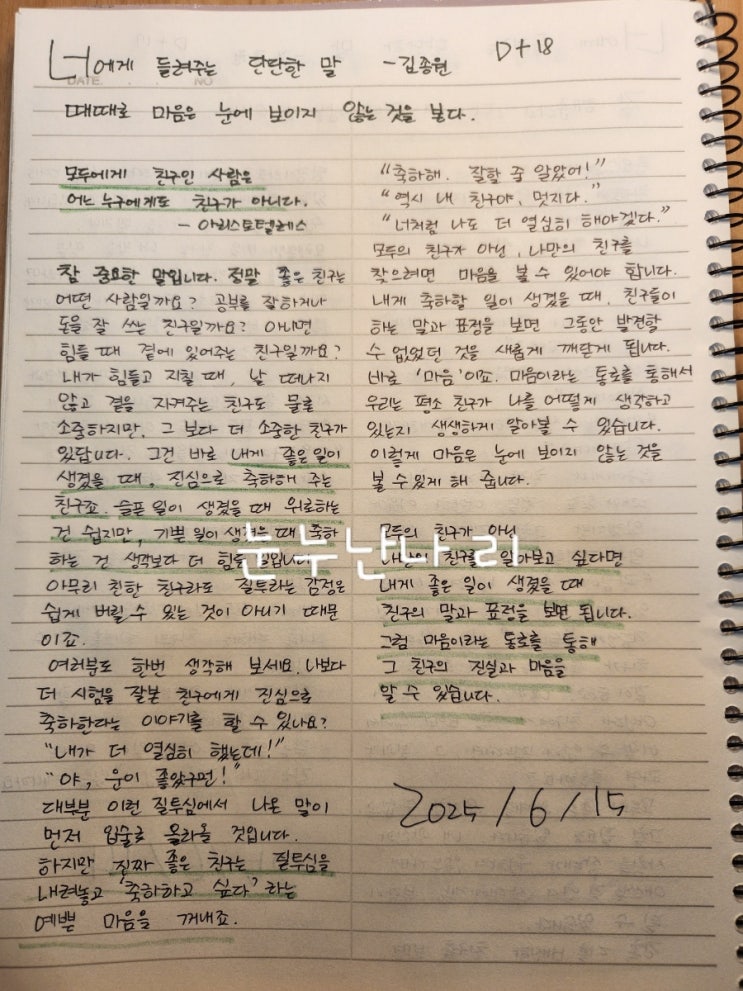 너에게 들려주는 단단한 말 -김종원 D+18
DATE. NO
때때로 마음은 눈에 보이지 않는 것을 본다.
모두에게 친구인 사람은
어느 누구에게도 친구가 아니다.
- 아리스토텔레스
참 중요한 말입니다. 정말 좋은 친구는
어떤 사람일까요? 공부를 잘하거나
돈을 잘 쓰는 친구일까요? 아니면
힘들 때 곁에 있어주는 친구일까요?
내가 힘들고 지칠 때, 날 떠나지
않고 곁을 지켜주는 친구도 물론
소중하지만, 그 보다 더 소중한 친구가
있답니다. 그건 바로 내게 좋은 일이
생겼을 때, 진심으로 축하해 주는
친구죠. 슬픈 일이 생겼을 때 위로하는
건 쉽지만, 기쁜 일이 생겼을 때 축하
하는 건 생각보다 더 힘든 일입니다
아무리 친한 친구라도 질투라는 감정은
쉽게 버릴 수 있는 것이 아니기 때문
이죠.
여러분도 한번 생각해 보세요. 나보다
더 시험을 잘본 친구에게 진심으로
축하한다는 이야기를 할 수 있나요?
"내가 더 열심히 했는데!"
"야, 운이 좋았구먼!"
대부분 이런 질투심에서 나온 말이
먼저 입술로 올라올 것입니다.
하지만 진짜 좋은 친구는 질투심을
내려놓고 '축하하고 싶다'라는
예쁜 마음을 꺼내죠.
"축하해. 잘할 줄 알았어!"
"역시 내 친구야, 멋지다."
"너처럼 나도 더 열심히 해야겠다."
모두의 친구가 아닌, 나만의 친구를
찾으려면 마음을 볼 수 있어야 합니다.
내게 축하할 일이 생겼을 때, 친구들이
하는 말과 표정을 보면 그동안 발견할
수 없었던 것을 새롭게 깨닫게 됩니다.
바로 '마음'이죠. 마음이라는 통로를 통해서
우리는 평소 친구가 나를 어떻게 생각하고
있는지 생생하게 알아볼 수 있습니다.
이렇게 마음은 눈에 보이지 않는 것을
볼 수 있게 해 줍니다.
모두의 친구가 아닌
나만의 친구를 알아보고 싶다면
내게 좋은 일이 생겼을 때
친구의 말과 표정을 보면 됩니다.
그럼 마음이라는 통로를 통해
그 친구의 진실과 마음을
알 수 있습니다.
2025/6/15
눈누난나리